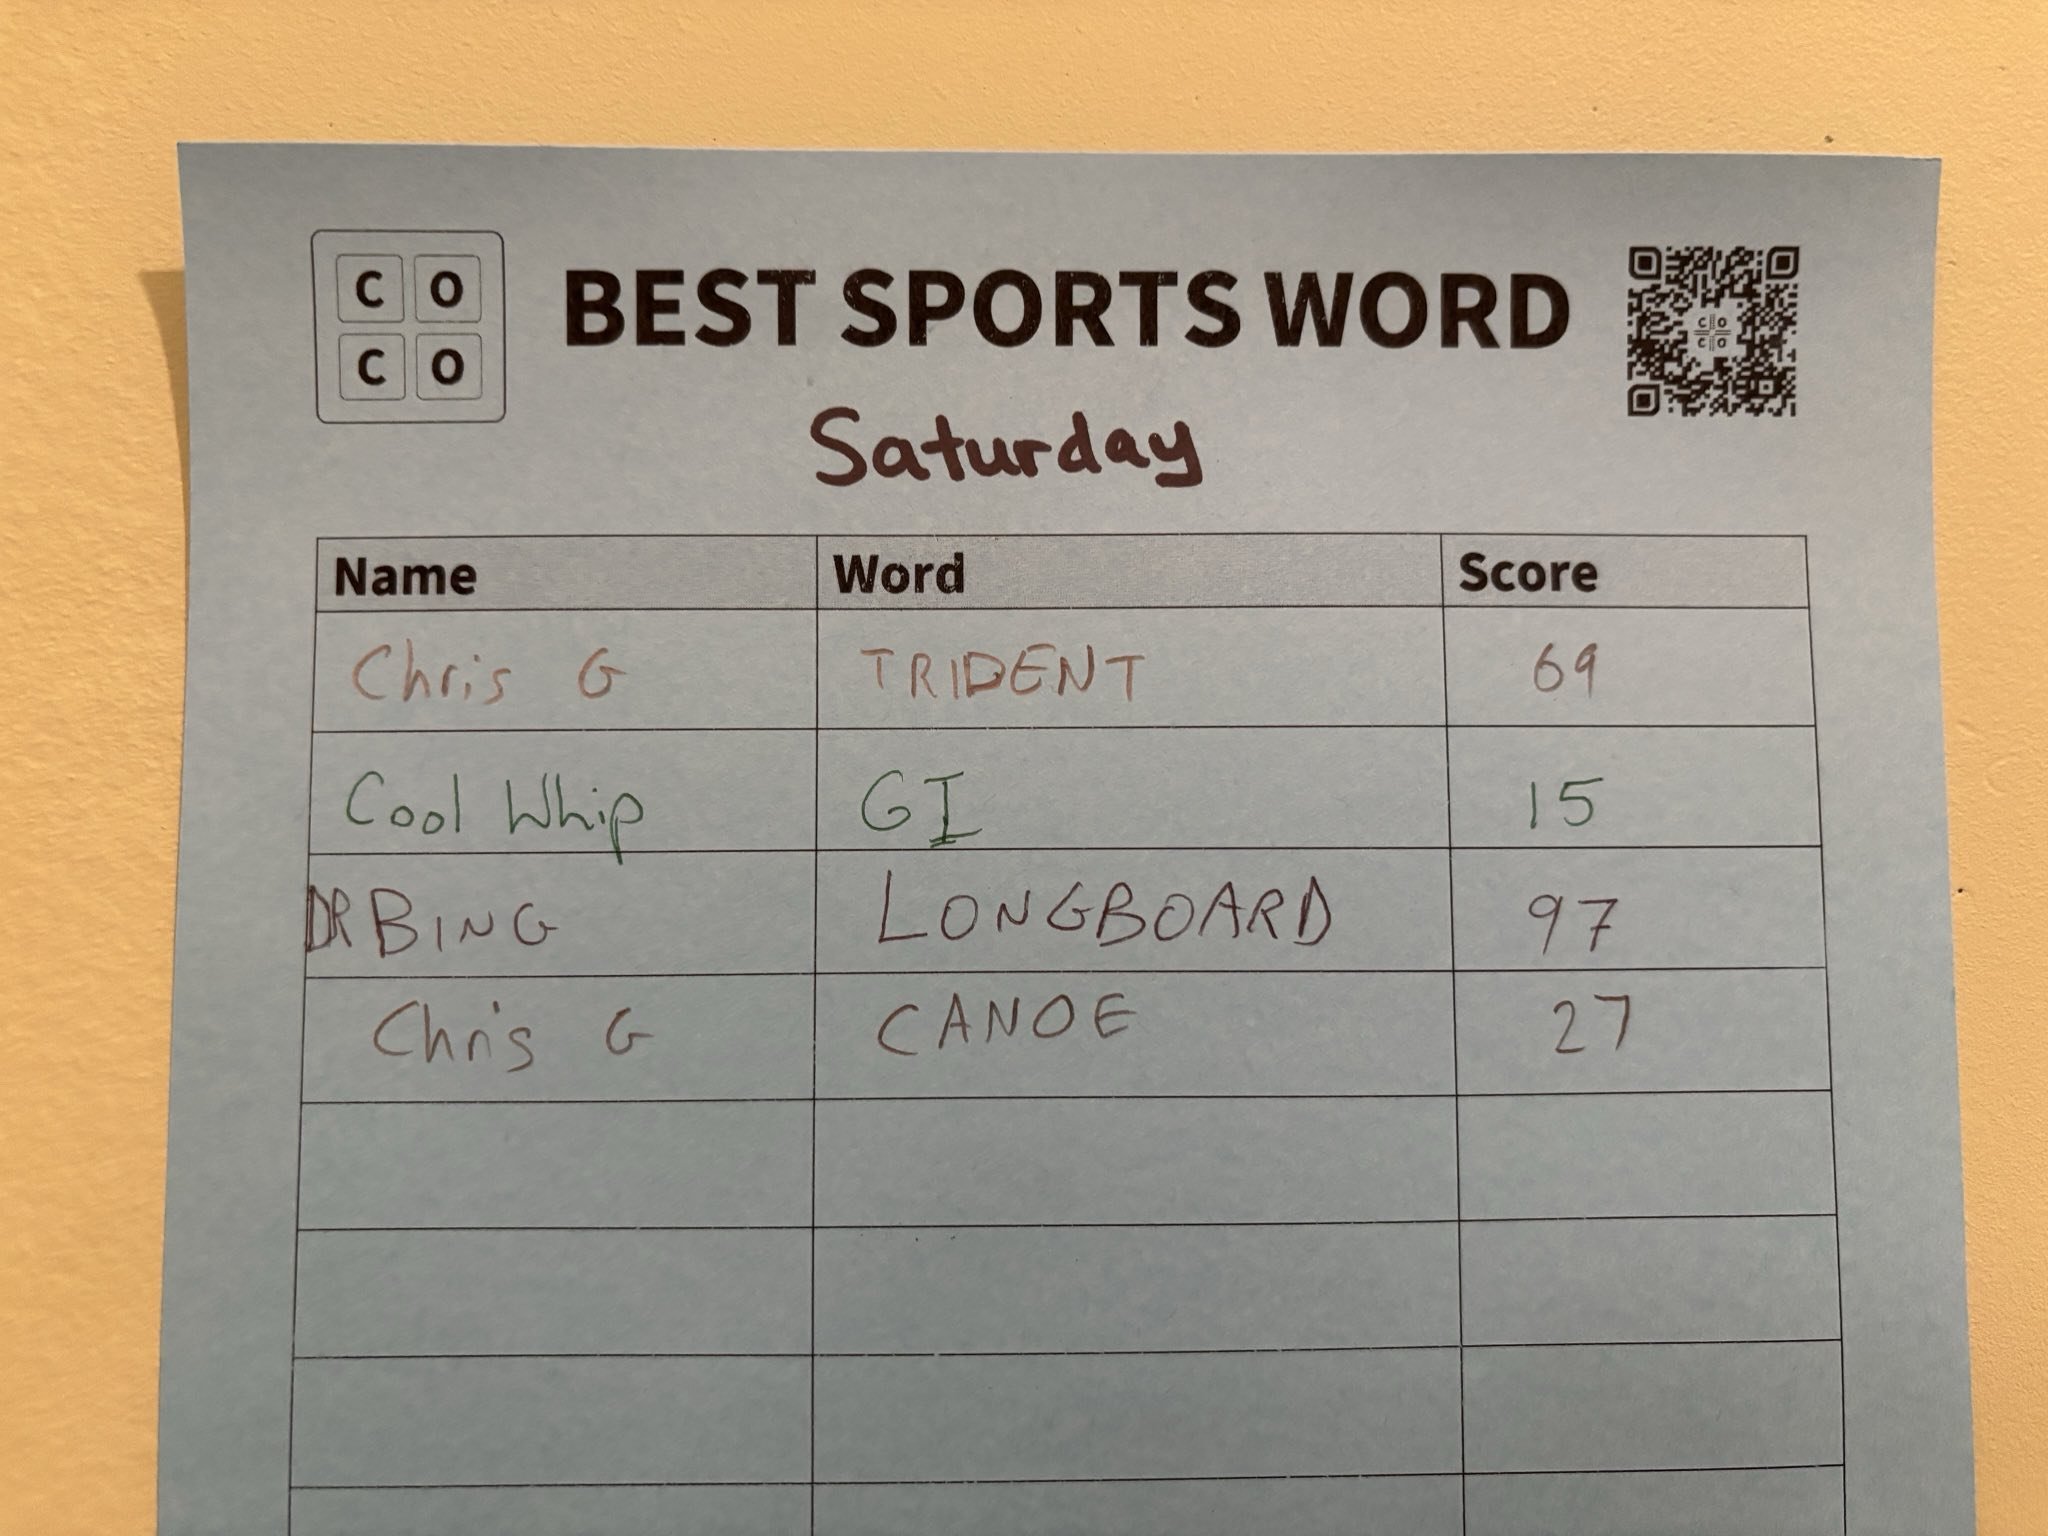 C O
C O
BEST SPORTS WORD
Saturday
Name Word Score
Chris G TRIDENT 69
Cool Whip GI 15
DR BING LONGBOARD 97
Chris G CANOE 27